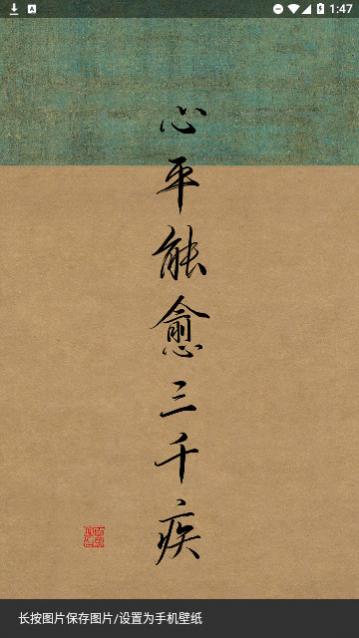 1:47
心平能愈三千疾
长按图片保存图片/设置为手机壁纸